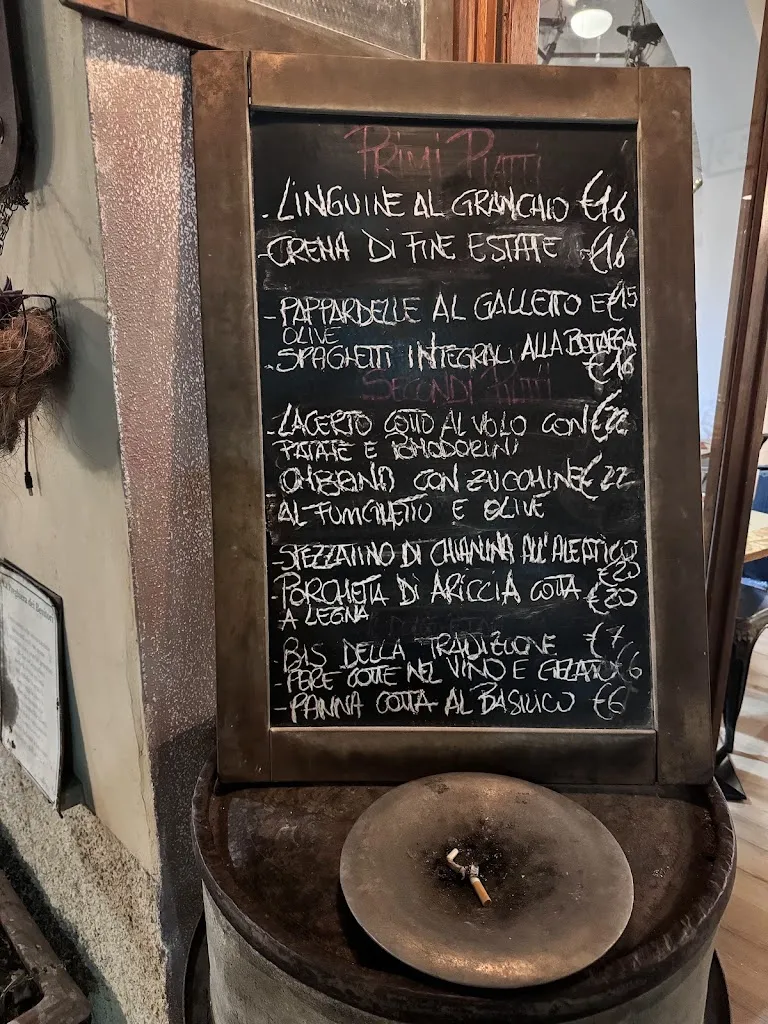 PRIMI PIATTI
- LINGUINE AL GRANCHIO €16
- CREMA DI FINE ESTATE €16
- PAPPARDELLE AL GALLETTO E €15
OLIVE
- SPAGHETTI INTEGRALI ALLA BOTTARGA
€16
SECONDI PIATTI
- LACERTO COTTO AL VOLO CON €22
PATATE E POMODORINI
OMBRINA CON ZUCCHINE €22
AL FUMGHETTO E OLIVE
- SPEZZATINO DI CHIANINA
€20
- PORCHETTA DI ARICCIA COTTA €20
A LEGNA
- BIS DELLA TRADIZIONE €7
- PERE COTTE NEL VINO E GELATO €6
- PANNA COTTA AL BASILICO €6